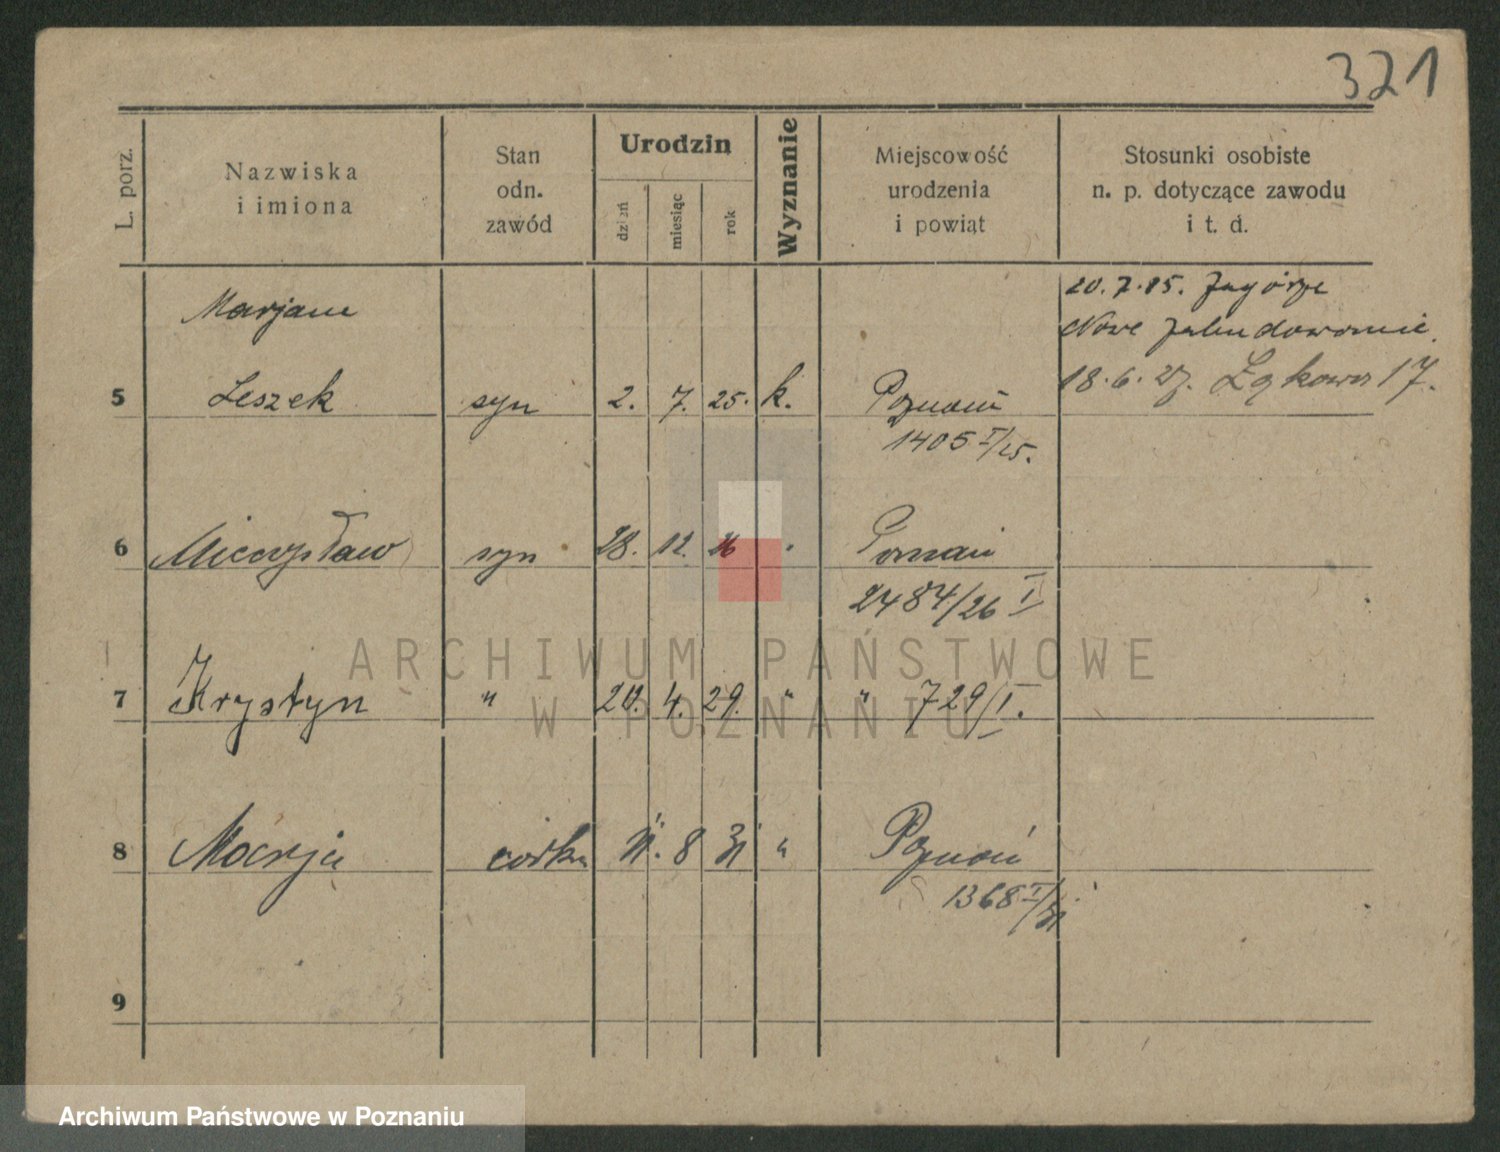 321
L. porz.
Nazwiska
i imiona
Stan
odn.
zawód
Urodzin
dzień
miesiąc
rok
Wyznanie
Miejscowość
urodzenia
i powiąt
Stosunki osobiste
n. p. dotyczące zawodu
i t. d.
20.7.25. Zagórze
Nowe zabudowanie.
18.6.27. Łąkowa 17.
Marjan
5 Leszek syn 2. 7. 25. k. Poznań
1405 I/25.
6 Mieczysław syn 28. 12. 26 Poznań
2484/26 I
7 Krystyn " 20. 4. 29. " " 729/I.
8 Marja córka 11. 8 31 " Poznań
1368 I/31
9
ARCHIWUM PAŃSTWOWE
W POZNANIU
Archiwum Państwowe w Poznaniu